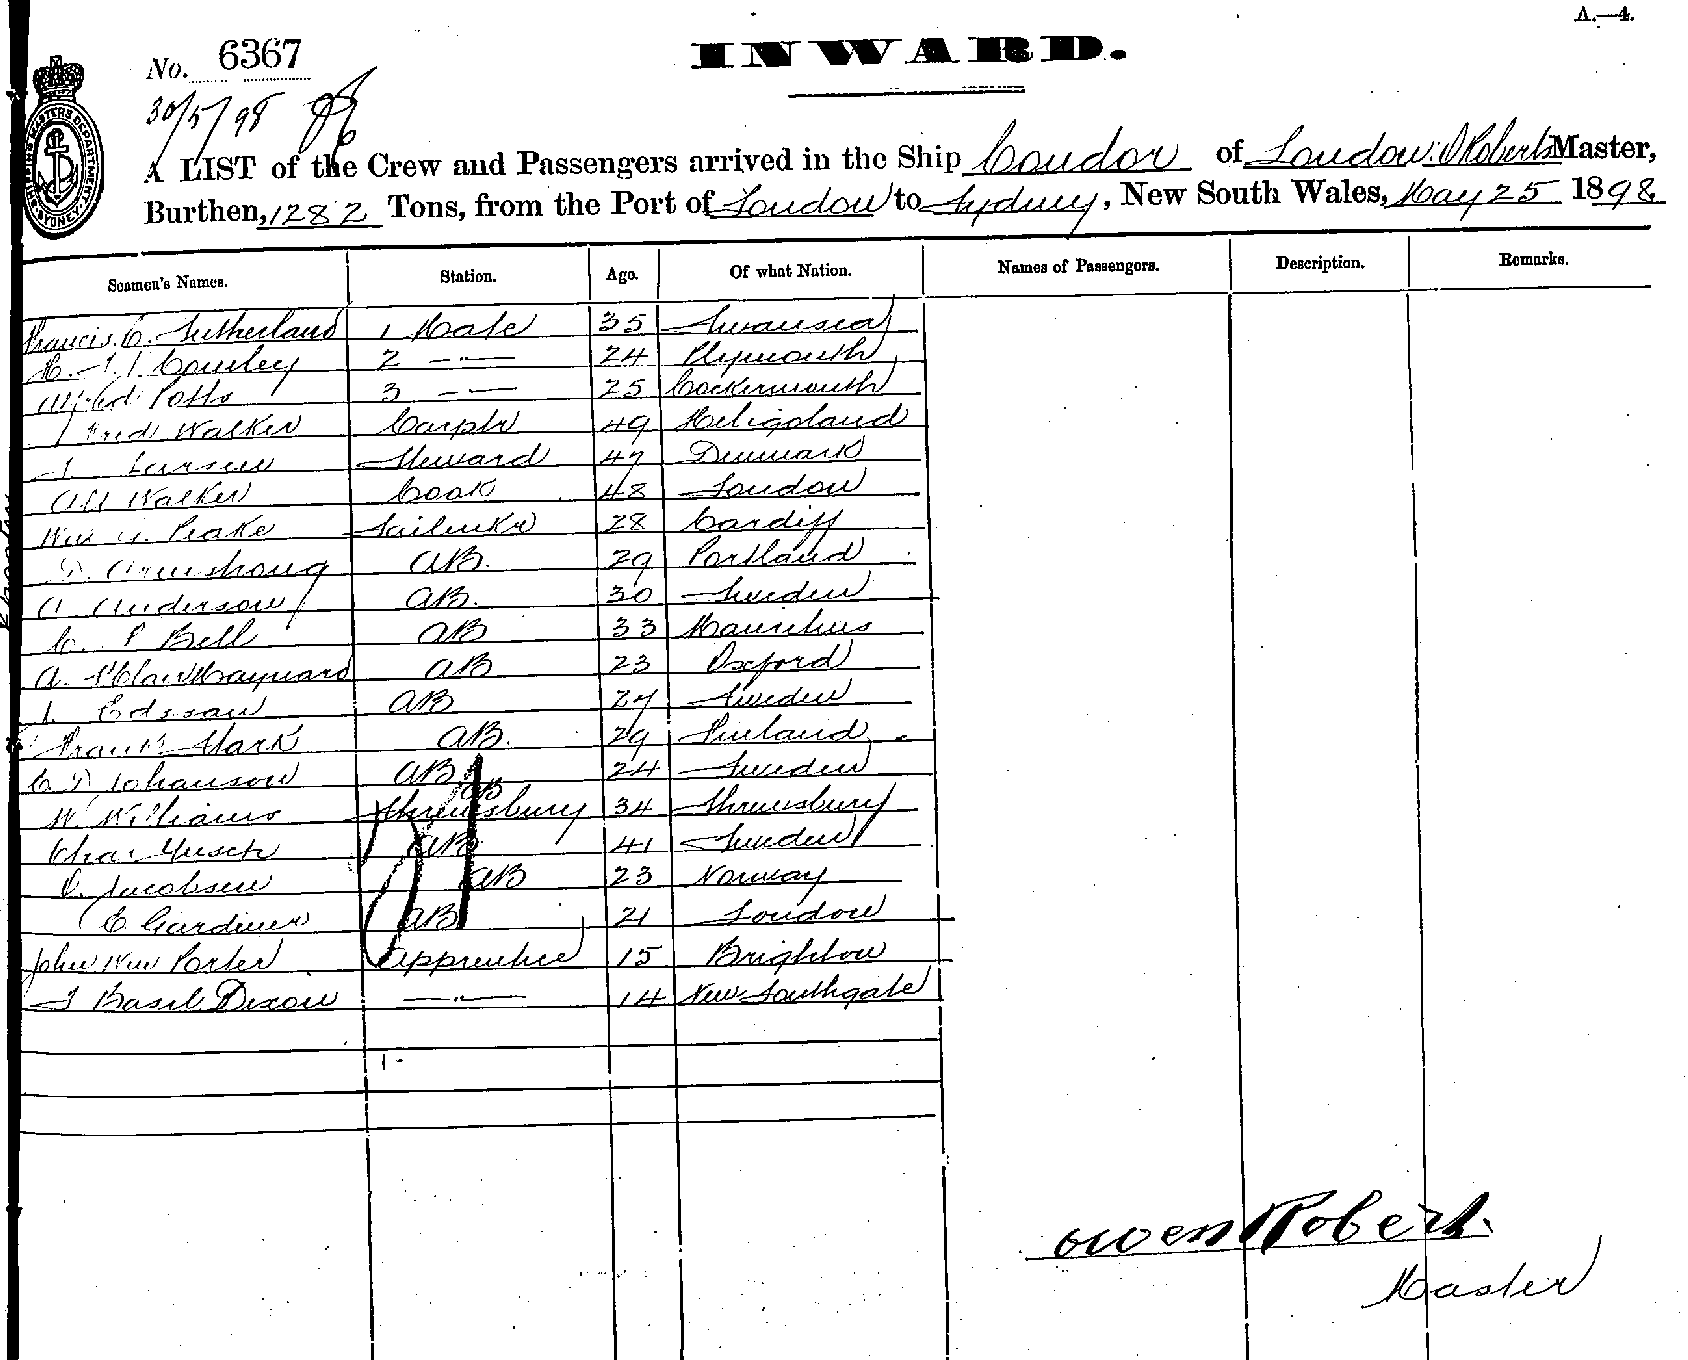 A.—4.
INWARD.
No. 6367
30/5/98
A LIST of the Crew and Passengers arrived in the Ship Condor of London: O Roberts Master,
Burthen, 1282 Tons, from the Port of London to Sydney, New South Wales, May 25 1898
Seamen's Names. Station. Age. Of what Nation. Names of Passengers. Description. Remarks.
Francis C. Sutherland 1 Mate 35 Swansea
Cowley 2 —〃— 24 Plymouth
Alfred Potts 3 —〃— 25 Cockermouth
Fred Walker Carptr 49 Heligoland
Larsen Steward 47 Denmark
Alf Walker Cook 48 London
Wm G. Peake Sailmkr 28 Cardiff
D. Armstrong AB. 29 Portland
A Anderson AB. 30 Sweden
C. P Bell AB 33 Mauritius
A. StClair Maynard AB 23 Oxford
Edssan AB 27 Sweden
Frank Stark AB. 29 Finland
C D Johanson AB 24 Sweden
W. Williams Shrewsbury AB 34 Shrewsbury
Chas AB 41 Sweden
O. Jacobsen AB 23 Norway
C. Gardiner AB 21 London
John Wm Porter Apprentice 15 Brighton
T Basil Dixon —〃— 14 New Southgate
Owen Roberts.
Master